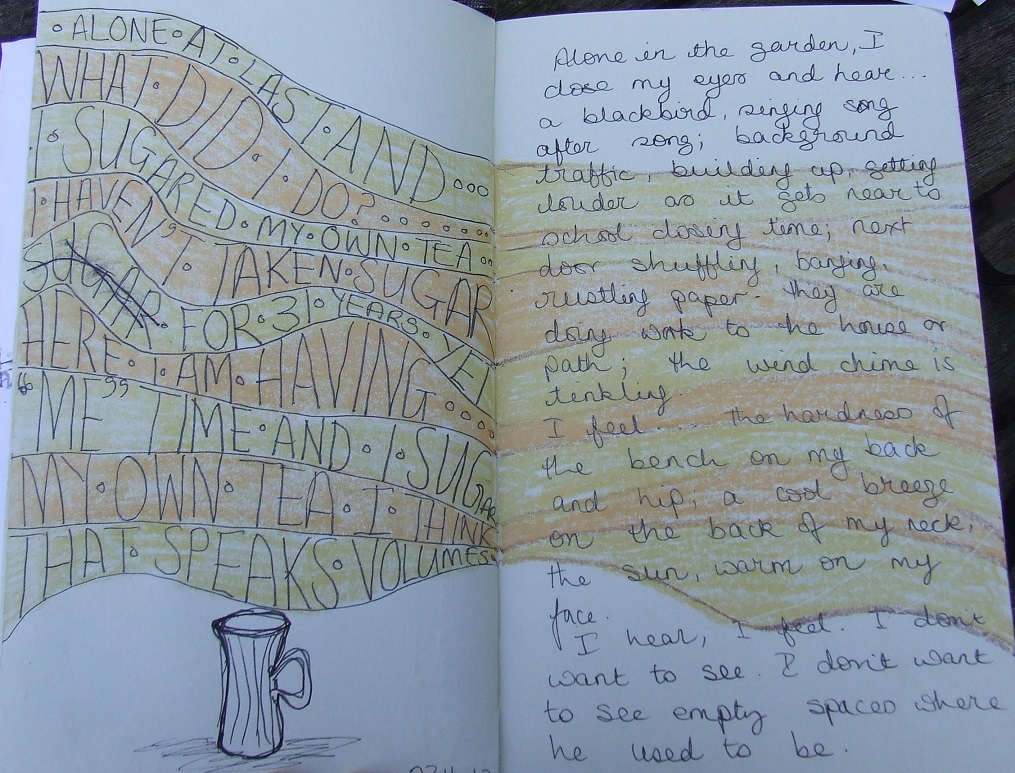 ALONE AT LAST AND...
WHAT DID I DO?......
I SUGARED MY OWN TEA..
I HAVEN'T TAKEN SUGAR
SUGAR FOR 31 YEARS. YET
HERE I AM HAVING....
"ME" TIME AND I SUGAR
MY OWN TEA. I THINK
THAT SPEAKS VOLUMES.
Alone in the garden, I
close my eyes and hear...
a blackbird, singing song
after song; background
traffic, building up, getting
louder as it gets near to
school closing time; next
door shuffling, banging,
rustling paper - they are
doing work to the house or
path; the wind chime is
tinkling.
I feel.... the hardness of
the bench on my back
and hip; a cool breeze
on the back of my neck;
the sun, warm on my
face.
I hear, I feel. I don't
want to see. I don't want
to see empty spaces where
he used to be.